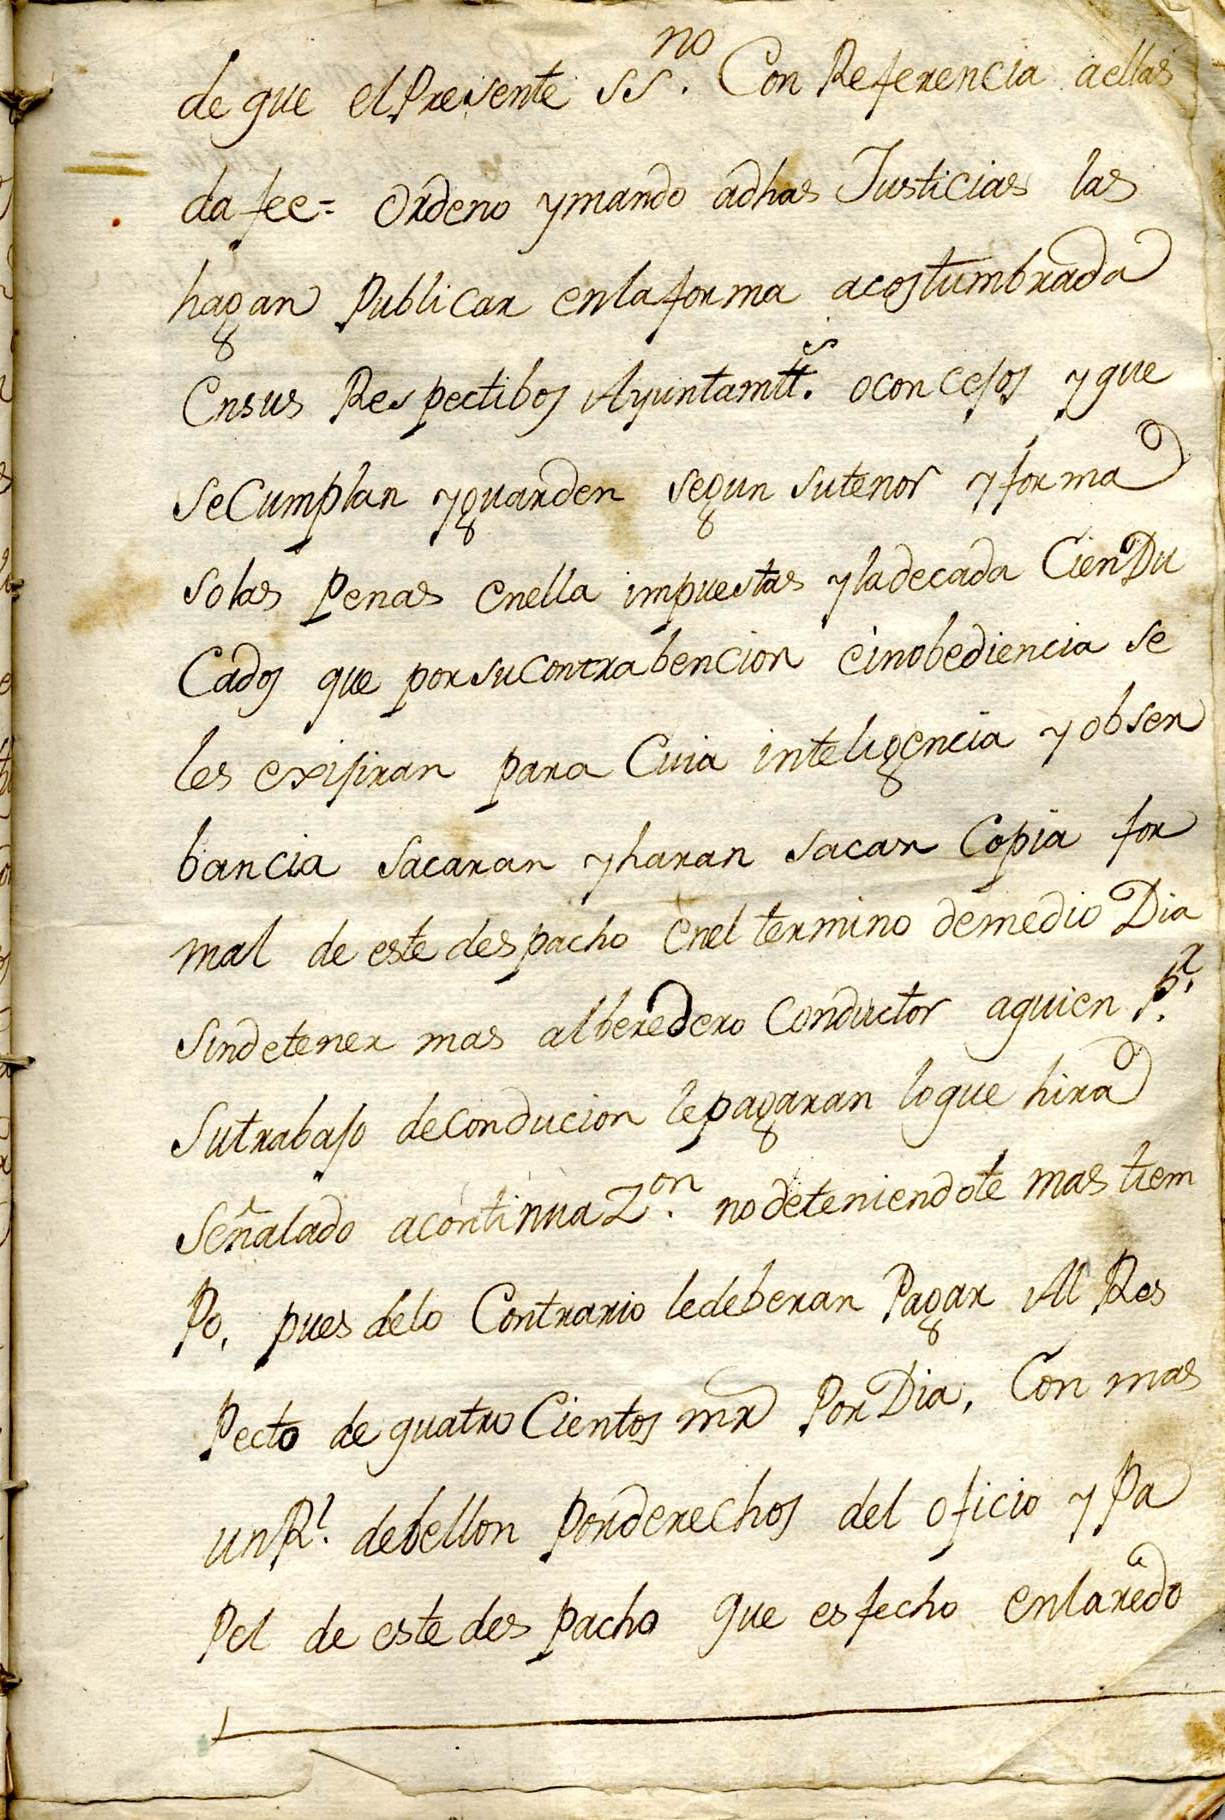 de que el Presente SS.no Con Referencia aellas
da fee= ordeno ymando adhas Justicias las
hagan Publicar enlaforma acostumbrada
Ensus Respectibos Ayuntamtt.s oconcejos y que
secumplan yguarden segun sutenor y forma
solas Penas enella impuestas yladecada CienDu
Cados que porsucontrabencion einobediencia se
les exijiran para Cuia inteligencia y obser
bancia sacaran yharan sacar Copia for
mal de este despacho enel termino demedio Dia
sindetener mas alberedero Conductor aquien P.a
sutrabajo deconducion lepagaran loque hira
señalado acontinuaZ.on nodeteniendole mas tiem
Po, pues delo Contrario ledeberan Pagar Al Res
Pecto de quatro Cientos mr Por Dia, Con mas
unR.l debellon Porderechos del oficio y Pa
Pel de este des pacho que esfecho enlaredo